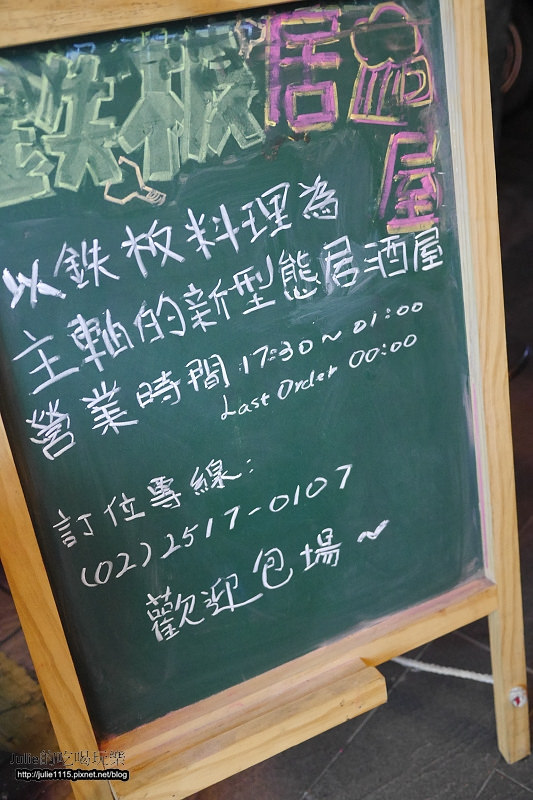 鉄板居酒屋
以鉄板料理為
主軸的新型態居酒屋
營業時間:17:30~01:00
Last Order 00:00
訂位專線:
(02)2517-0107
歡迎包場~
Julie的吃喝玩樂
http://julie1115.pixnet.net/blog